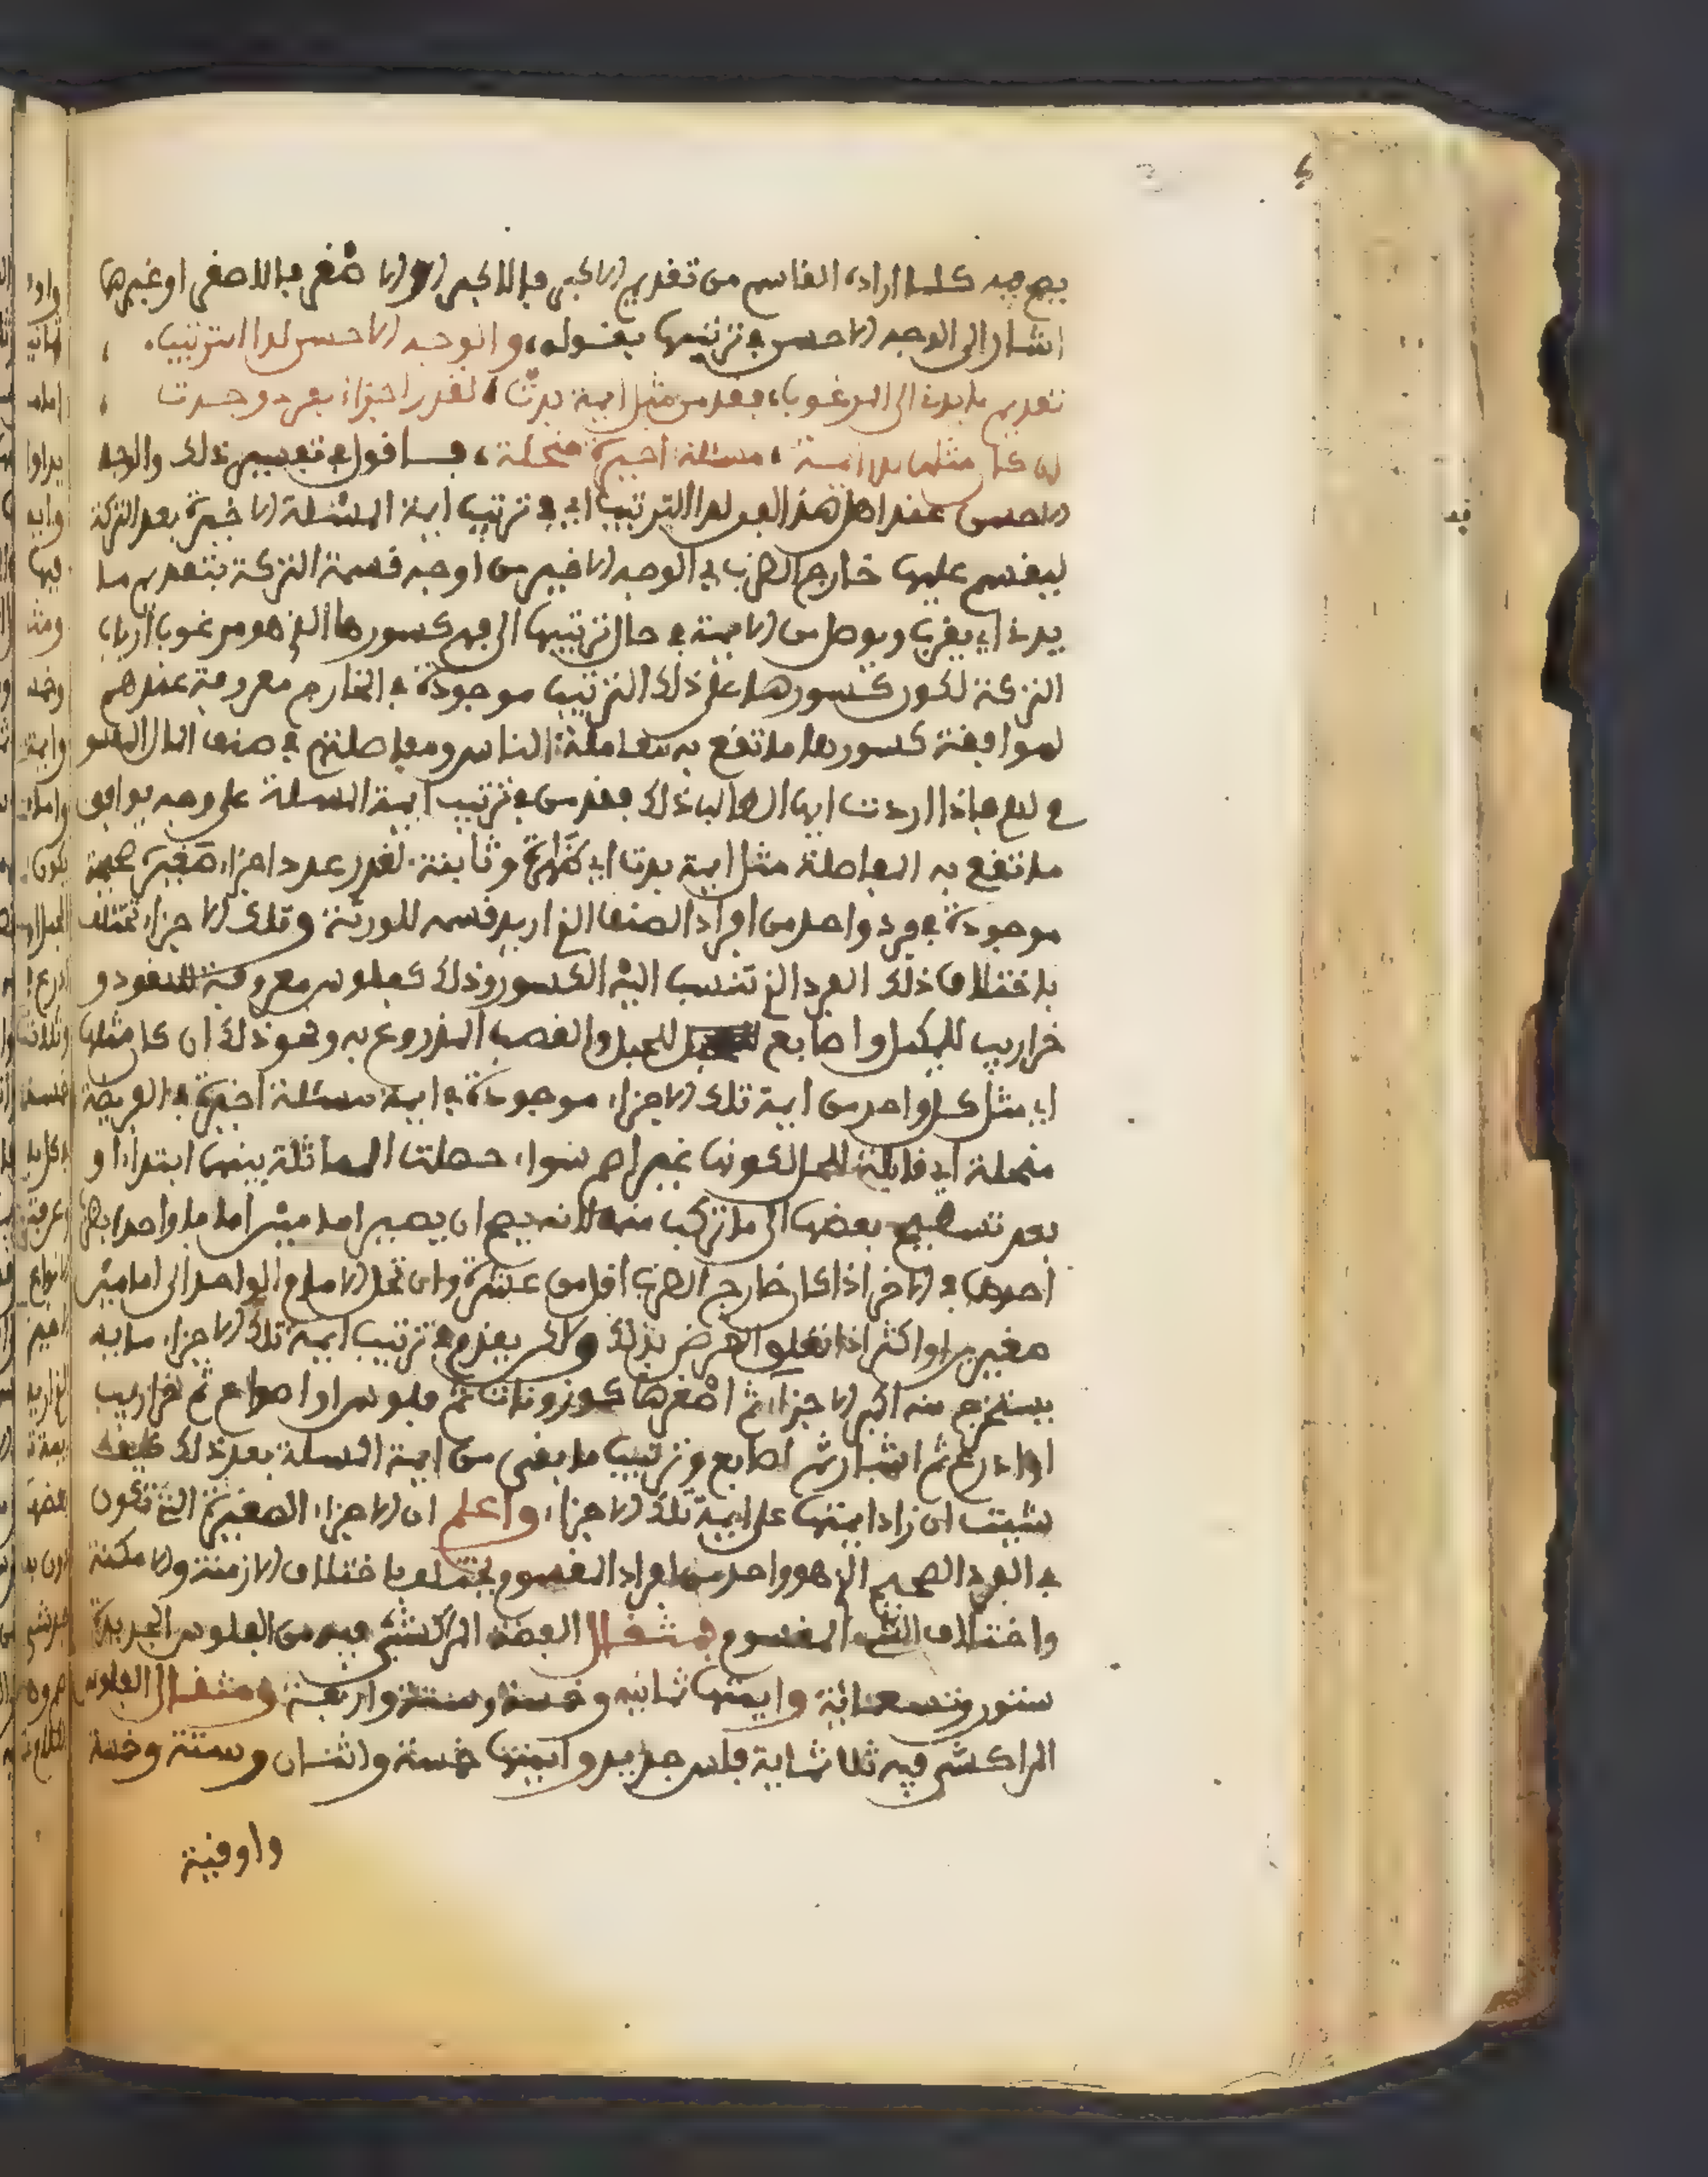 يصح فيه كلما اراده القاسم من تقديم الاكبر فالاكبر او الاصغر فالاصغر او غيرها
اشار الى الوجه الاحسن في ترتيبها بقوله، والوجه الاحسن لدا الترتيب،
تقديم ما يدن الى المرغوب، فقدمن مثل ايمة بدت، لقدر اجزاء بفرد وجدت
ان كان مثلها بدا ايمة، مسئلة اخيرة منحلة، فساقول في تفسير ذلك والوجه
الاحسن عند اهل هذا الفن لدا الترتيب اي في ترتيب ايمة المسئلة الاخيرة بعد التركة
ليقسم عليها خارج الضرب في الوجه الاخير من اوجه قسمة التركة بتقديم ما
يدن اي يقرب ويوصل من الايمة في حال ترتيبها الى فهم كسورها الذي هو مرغوب ارباب
التركة لكون كسورها على ذلك الترتيب موجودة في الخارج معروفة عندهم
لموافقة كسورها ما تقع به معاملة الناس ومفاصلتهم في صنف المال المقسو
م لهم فاذا اردت ايها الطالب ذلك فقدمن في ترتيب ايمة المسئلة على وجه يوافق
ما تقع به المفاصلة مثل ايمة بدت اي ظهرت وثابتة لقدر عدد اجزاء صغيرة صحيحة
موجودة في فرد واحد من افراد الصنف الذي اريد قسمه للورثة وتلك الاجزاء تختلف
باختلاف ذلك الفرد الذي تنسب اليه الكسور وذلك كفلوس معروفة للنقود و
خراريب للكيل واصابع للحبل والقصب المذروع به ونحو ذلك ان كان مثلها
اي مثل كل واحد من ايمة تلك الاجزاء موجودة في ايمة مسئلة اخيرة في الفريضة
منحلة اي قابلة للحل لكونها غير اصم سواء حصلت المماثلة بينها ابتداء او
بعد تسطيح بعضها الى ما تركب منه لانه يصح ان يصير امامين اماما واحدا بضرب
احدهما في الاخر اذا كان خارج الضرب اقل من عشرة وان تحل الامام الواحد الى امامين
صغيرين او اكثر اذا تعلق الغرض بذلك ولاكن يقدم في ترتيب ايمة تلك الاجزاء ما به
يستخرج منه اكبر الاجزاء ثم اصغرها كموزونات ثم فلوس او اصواع ثم خراريب
او اذرع ثم اشبار ثم اصابع وترتيب ما بقي من ايمة المسئلة بعد ذلك كيف
شيت ان زاد ايمتها على ايمة تلك الاجزاء، واعلم ان الاجزاء الصغيرة التي تكون
في الفرد الصحيح الذي هو واحد من افراد المقسوم تختلف باختلاف الازمنة والامكنة
واختلاف الشيء المقسوم فمثقال الفضة المراكشي فيه من الفلوس الجديدة
ستون وتسعمائة وايمتها ثمانية وخمسة وستة واربعة ومثقال الفلوس
المراكشي فيه ثلاثماية فلس جديد وايمتها خمسة واثنان وستة وخمسة
واوقية